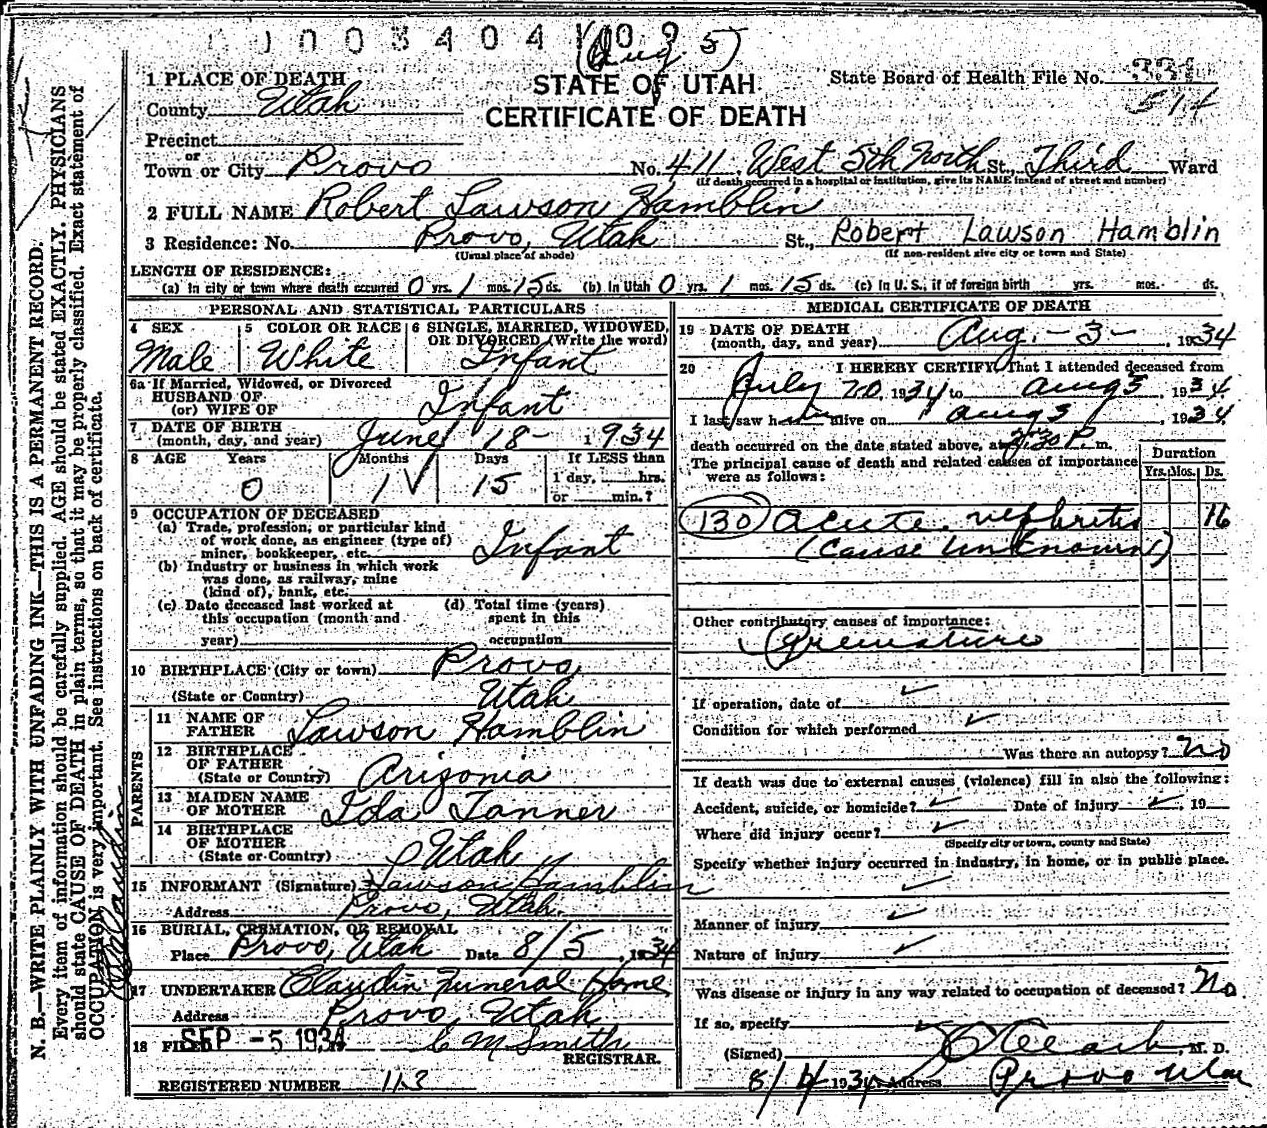 0 0 0 3 4 0 4 1 0 9
(Aug. 5)
STATE OF UTAH
CERTIFICATE OF DEATH
State Board of Health File No.
514
1 PLACE OF DEATH
County Utah
Precinct
or
Town or City Provo No. 411 West 5th North St., Third Ward
(If death occurred in a hospital or institution, give its NAME instead of street and number)
2 FULL NAME Robert Lawson Hamblin
3 Residence: No. Provo, Utah St., Robert Lawson Hamblin
(Usual place of abode) (If non-resident give city or town and State)
LENGTH OF RESIDENCE:
(a) In city or town where death occurred 0 yrs. 1 mos. 15 ds. (b) In Utah 0 yrs. 1 mos. 15 ds. (c) In U. S., if of foreign birth yrs. mos. ds.
PERSONAL AND STATISTICAL PARTICULARS
4 SEX 5 COLOR OR RACE 6 SINGLE, MARRIED, WIDOWED, OR DIVORCED (Write the word)
Male White Infant
6a If Married, Widowed, or Divorced
HUSBAND OF
(or) WIFE OF Infant
7 DATE OF BIRTH
(month, day, and year) June 18 - 1934
8 AGE Years Months Days If LESS than
0 1 15 1 day, hrs.
or min.?
9 OCCUPATION OF DECEASED
(a) Trade, profession, or particular kind
of work done, as engineer (type of)
miner, bookkeeper, etc. Infant
(b) Industry or business in which work
was done, as railway, mine
(kind of), bank, etc.
(c) Date deceased last worked at (d) Total time (years)
this occupation (month and spent in this
year) occupation
10 BIRTHPLACE (City or town) Provo
(State or Country) Utah
PARENTS
11 NAME OF
FATHER Lawson Hamblin
12 BIRTHPLACE
OF FATHER
(State or Country) Arizonia
13 MAIDEN NAME
OF MOTHER Ida Tanner
14 BIRTHPLACE
OF MOTHER
(State or Country) Utah
15 INFORMANT (Signature) Lawson Hamblin
Address Provo, Utah.
16 BURIAL, CREMATION, OR REMOVAL
Place Provo, Utah Date 8/5, 1934
17 UNDERTAKER Claudin Funeral Home
Address Provo, Utah
18 FILED SEP - 5 1934 C M Smith
REGISTRAR.
REGISTERED NUMBER 113
MEDICAL CERTIFICATE OF DEATH
19 DATE OF DEATH
(month, day, and year) Aug. - 3 - , 1934
20 I HEREBY CERTIFY, That I attended deceased from
July 20, 1934 to Aug 3, 1934.
I last saw him alive on Aug 3, 1934
death occurred on the date stated above, at 2:30 P m.
The principal cause of death and related causes of importance
were as follows:
Duration
Yrs. Mos. Ds.
(130) Acute nephritis 16
(Cause unknown)
Other contributory causes of importance:
Premature
If operation, date of
Condition for which performed
Was there an autopsy? No
If death was due to external causes (violence) fill in also the following:
Accident, suicide, or homicide? Date of injury , 19
Where did injury occur?
(Specify city or town, county and State)
Specify whether injury occurred in industry, in home, or in public place.
Manner of injury
Nature of injury
Was disease or injury in any way related to occupation of deceased? No.
If so, specify
(Signed) , M. D.
8/4 1934 Address Provo Utah
N. B.—WRITE PLAINLY WITH UNFADING INK—THIS IS A PERMANENT RECORD.
Every item of information should be carefully supplied. AGE should be stated EXACTLY. PHYSICIANS
should state CAUSE OF DEATH in plain terms, so that it may be properly classified. Exact statement of
OCCUPATION is very important. See instructions on back of certificate.